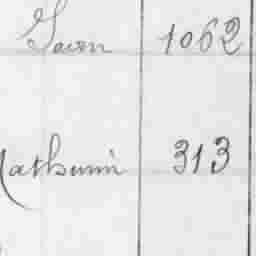 Savon 1062
Mathurin 313